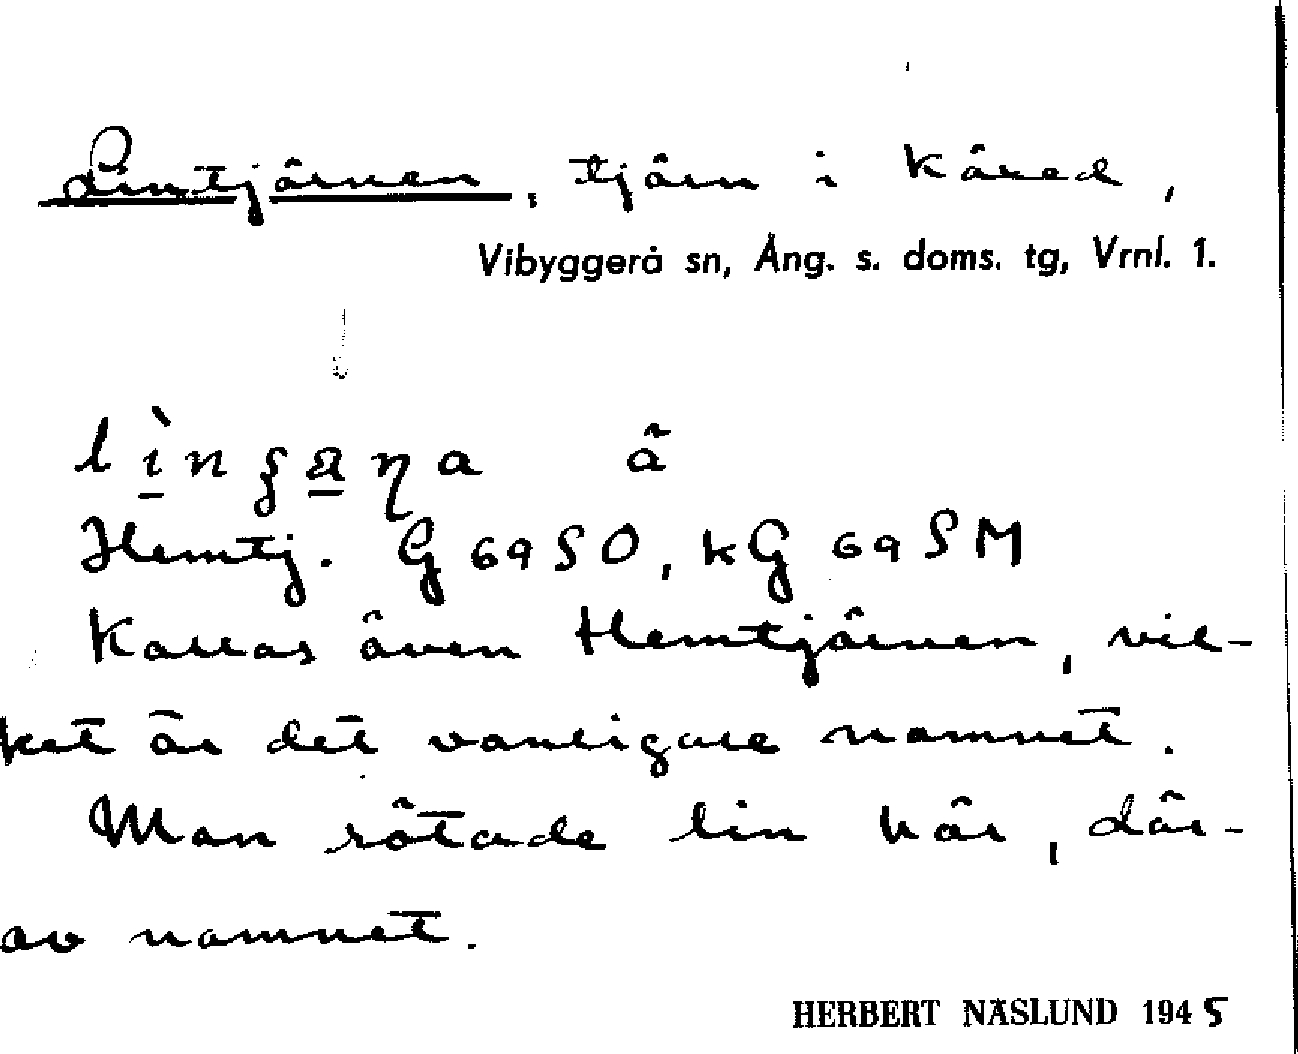 Lintjärnen, tjärn i Käxed,
Vibyggerå sn, Ång. s. doms. tg, Vrnl. 1.
Hemtj. G 69 SO, kG 69 SM
Kallas även Hemtjärnen, vil-
ket är det vanligare namnet.
Man rötade lin här, där-
av namnet.
HERBERT NÄSLUND 1945